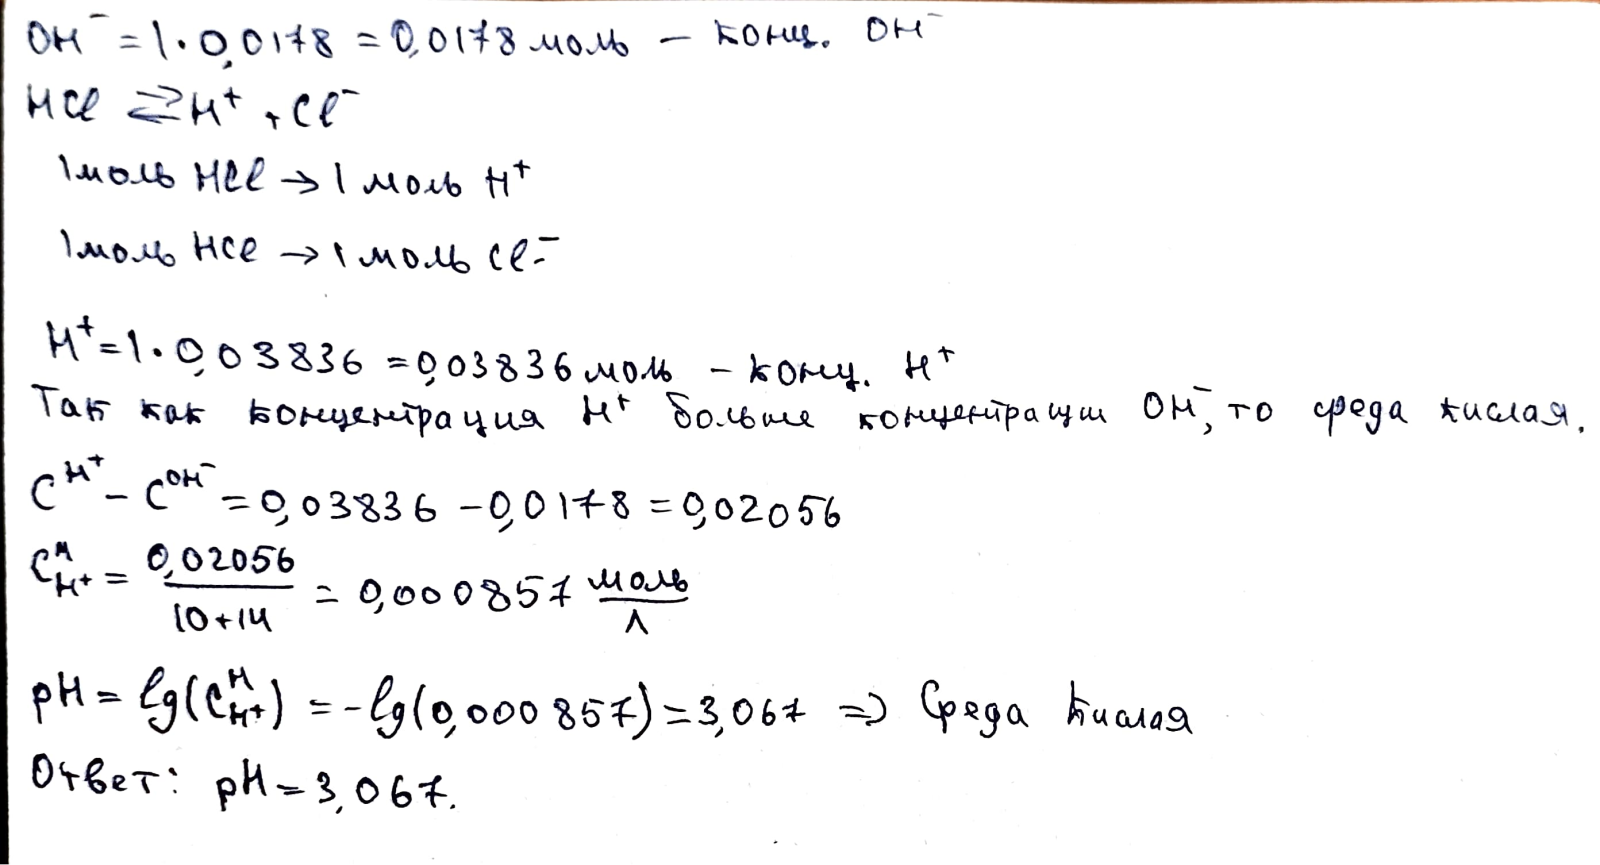 OH⁻ = 1·0,0178 = 0,0178 моль – конц. OH⁻
HCl ⇄ H⁺ + Cl⁻
1 моль HCl → 1 моль H⁺
1 моль HCl → 1 моль Cl⁻
H⁺ = 1·0,03836 = 0,03836 моль – конц. H⁺
Так как концентрация H⁺ больше концентрации OH⁻, то среда кислая.
C^{H⁺} – C^{OH⁻} = 0,03836 – 0,0178 = 0,02056
C^{M}_{H⁺} = 0,02056 / (10+14) = 0,000857 моль/л
pH = lg(C^{M}_{H⁺}) = -lg(0,000857) = 3,067 => Среда кислая
Ответ: pH = 3,067.